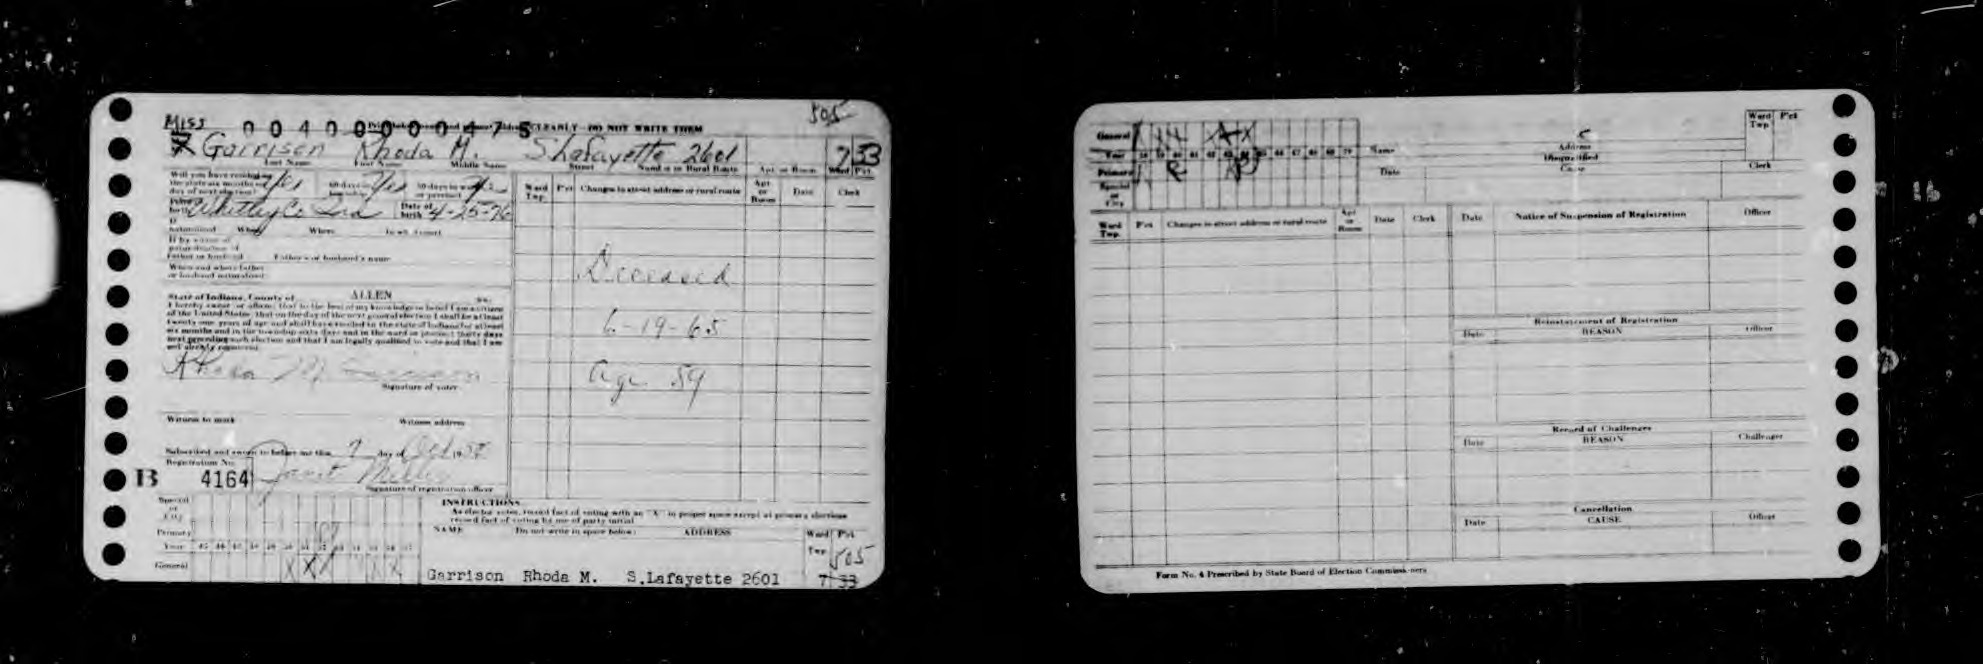 MISS 0040000475 505
CLEARLY—DO NOT WRITE THEM
Garrison Rhoda M. S Lafayette 2601 7 33
Last Name First Name Middle Name Street Number or Rural Route Apt. or Room Ward Pct.
Will you have resided in
the state six months on
day of next election? Yes 60 days in township Yes 30 days in ward or precinct Yes
Place of birth Whitley Co Ind Date of birth 4-25-76
If naturalized When Where In what court
If by reason of
naturalization of
Father or husband Father's or husband's name
When and where father
or husband naturalized
State of Indiana, County of ALLEN ss.
I hereby swear or affirm that to the best of my knowledge or belief I am a citizen
of the United States, that on the day of the next general election I shall be at least
twenty one years of age and shall have resided in the state of Indiana for at least
six months and in the township sixty days and in the ward or precinct thirty days
next preceding such election and that I am legally qualified to vote and that I am
not already registered.
Rhoda M. Garrison
Signature of voter
Witness to mark Witness address
Subscribed and sworn to before me this 7 day of Oct 19
Registration No.
B 4164 Janet Miller
Signature of registration officer
Ward Twp. P'ct Changes in street address or rural route Apt or Room Date Clerk
Deceased
6-19-65
age 89
Special or City
Primary
Year
General
INSTRUCTIONS
As elector votes, record fact of voting with an "X" in proper space except at primary elections
record fact of voting by use of party initial
NAME Do not write in space below: ADDRESS Ward Twp P'ct
505
Garrison Rhoda M. S.Lafayette 2601 7 33
General
Year
Primary R R
Special or City
Name Address Ward Twp P'ct
Disqualified
Date Cause Clerk
Ward Twp. P'ct Changes in street address or rural route Apt or Room Date Clerk
Date Notice of Suspension of Registration Officer
Reinstatement of Registration
Date REASON Officer
Record of Challenges
Date REASON Challenger
Cancellation
Date CAUSE Officer
Form No. 4 Prescribed by State Board of Election Commissioners